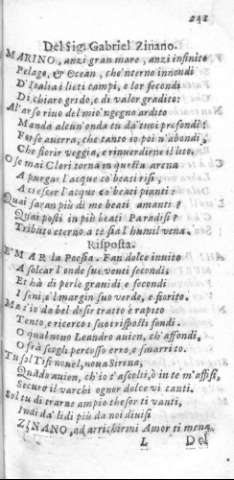 242
Del Sig. Gabriel Zinano.
MARINO, anzi gran maro, anzi infinito
Pelago, & Ocean, che'nterno innondi
D'Italia i lieti campi, e lor fecondi
Di chiaro grido, e di valor gradito:
Al'arso rivo del mio'ngegno ardito
Manda alcun'onda tu da'tuoi profondi:
Forse auerra, che tanto io poi n'abondi,
Che fiorir veggia, e rinuerdirne il lito.
O se mai Clori torna in questa arena
A purgar l'acque co'beati risi,
A crescer l'acque co'beati pianti:
Quai saran più di me beati amanti?
Quai posti in più beati Paradisi?
Tributo eterno a te sia l'humil vena.
Risposta.
E' MAR la Poesia. Fan dolce inuito
A solcar l'onde sue venti secondi,
Et hà di perle grandi e fecondi
I seni, e'l margin suo verde, e fiorito.
Ma s'io da bel desir tratto è rapito
Tento, e ricerco i suoi riposti fondi
O qual nouo Leandro auien, ch'affondi,
O fra scogli percosso erro, e smarrito.
Tu sol Tifi nouel, noua Sirena,
Qualhora auien, ch'io t'ascolti, ò in te m'affisi,
Securo il varchi ognor dolce vi canti.
Sol tu di trarne ampie thesor ti vanti,
Indi da' lidi più da noi diuisi
ZINANO, ad arrichirmi Amor ti mena.
L Del